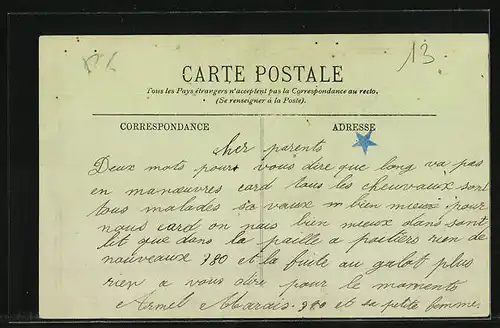 13
CARTE POSTALE
Tous les Pays étrangers n'acceptent pas la Correspondance au recto.
(Se renseigner à la Poste).
CORRESPONDANCE
ADRESSE
cher parents
Deux mots pour vous dire que long va pas
en manœuvres card tous les cheuvaux sont
tous malades sa vaux bien mieux pour
nous card on nais bien mieux dans sont
lit que dans la paille a poitiers rien de
nauveaux 380 et la fuite au galot plus
rien a vous dire pour le moments
Armel Marais 380 et sa petite femme